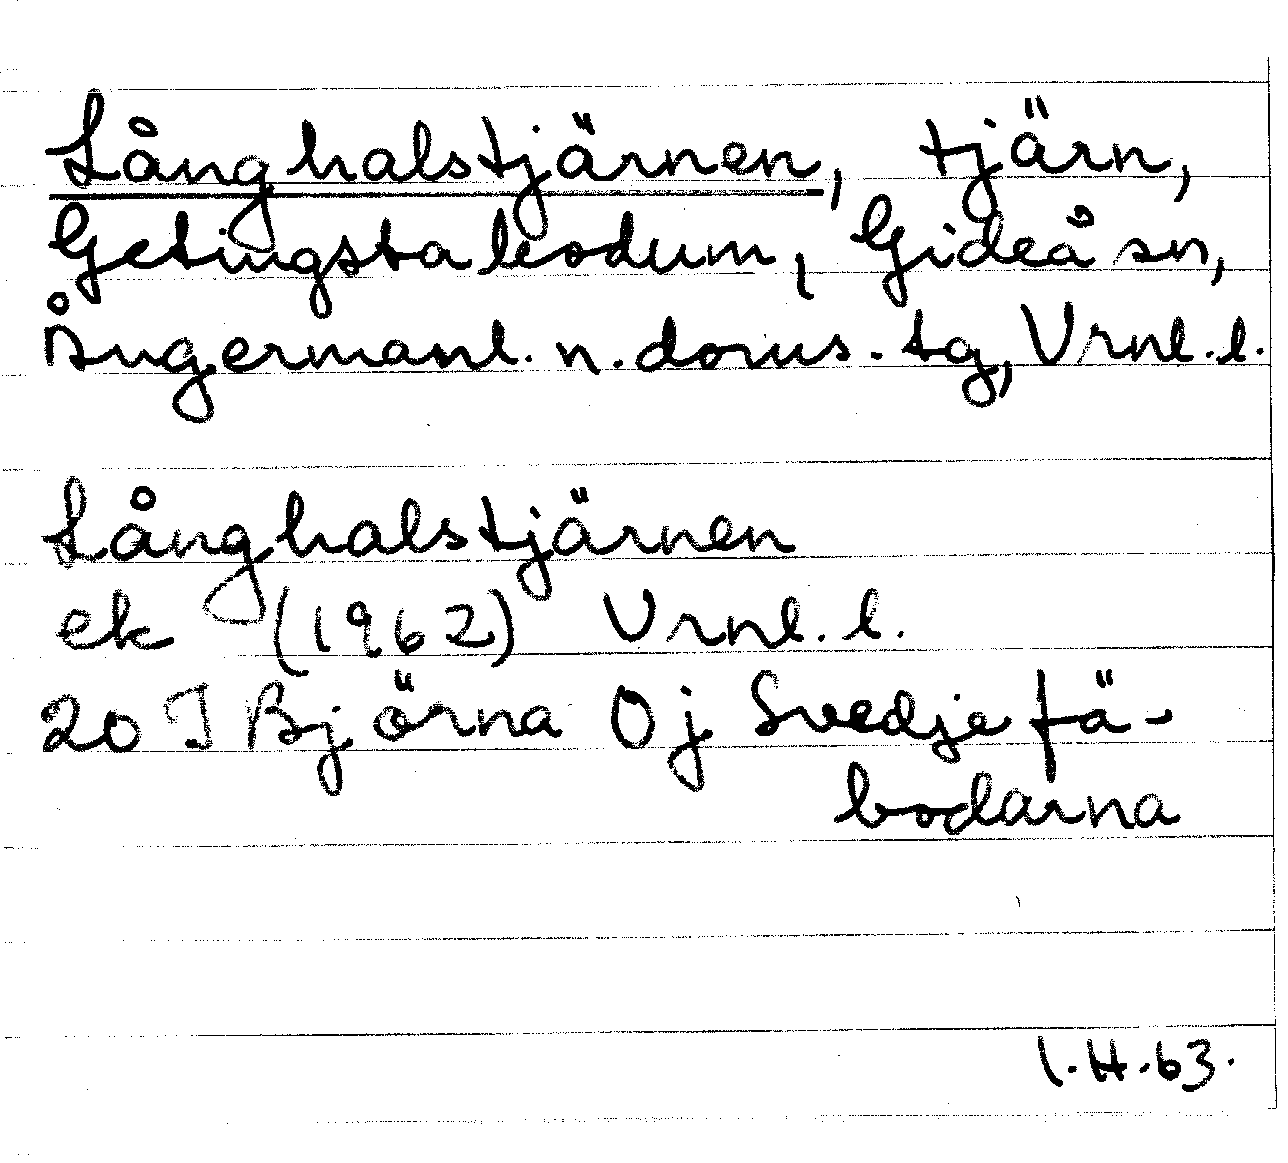 Långhalstjärnen, tjärn,
Getingstabodum, Gideå sn,
Ångermanl. n. doms. tg, Vrnl. l.
Långhalstjärnen
ek (1962) Vrnl. l.
20 I Björna Oj Svedjefä-
bodarna
I.H.63.